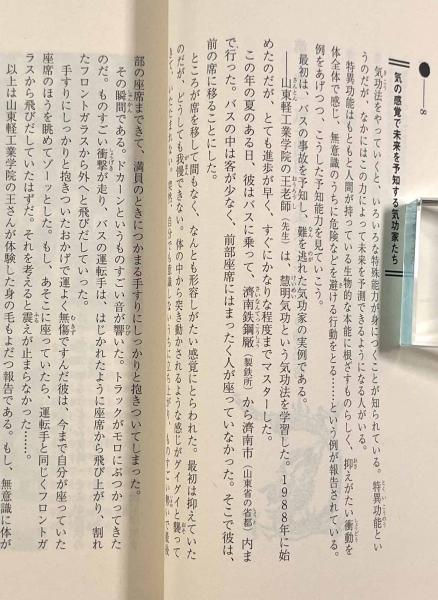 8
気の感覚で未来を予知する気功家たち
気功をやっていくと、いろいろな特殊能力が身につくことが知られている。特異功能とい
うのだが、なかにはこの力によって未来を予測できるようになる人がいる。
特異功能はもともと人間が持っている生物的な本能に根ざすものらしく、抑えがたい衝動を
体全体で感じ、無意識のうちに危険などを避ける行動をとる……という例が報告されている。
例をあげつつ、こうした予知能力を見ていこう。
最初は、バスの事故を予知し、難を逃れた気功家の実例である。
――山東軽工業学院の王老師（先生）は、慧明気功という気功法を学習した。1988年に始
めたのだが、とても進歩が早く、すぐにかなりな程度までマスターした。
この年の夏のある日、彼はバスに乗って、済南鉄鋼厰（製鉄所）から済南市（山東省の省都）内ま
で行った。バスの中は客が少なく、前部座席にはまったく人が座っていなかった。そこで彼は、
前の席に移ることにした。
ところが席を移して間もなく、なんとも形容しがたい感覚にとらわれた。最初は抑えていた
のだが、どうしても我慢できない。体の中から突き動かされるような感じがグイグイと襲って
部の座席まできて、満員のときにつかまる手すりにしっかりと抱きついてしまった。
その瞬間である。ドカーンというものすごい音が響いた。トラックがモロにぶつかってきた
のだ。ものすごい衝撃が走り、バスの運転手は、はじかれたように座席から飛び上がり、割れ
たフロントガラスから外へと飛びだしていった。
手すりにしっかりと抱きついたおかげで運よく無傷ですんだ彼は、今まで自分が座っていた
座席のほうを眺めてゾーッとした。もし、あそこに座っていたら、運転手と同じくフロントガ
ラスから飛びだしていたはずだ。それを考えると震えが止まらなかった……。
以上は山東軽工業学院の王さんが体験した身の毛もよだつ報告である。もし、無意識に体が